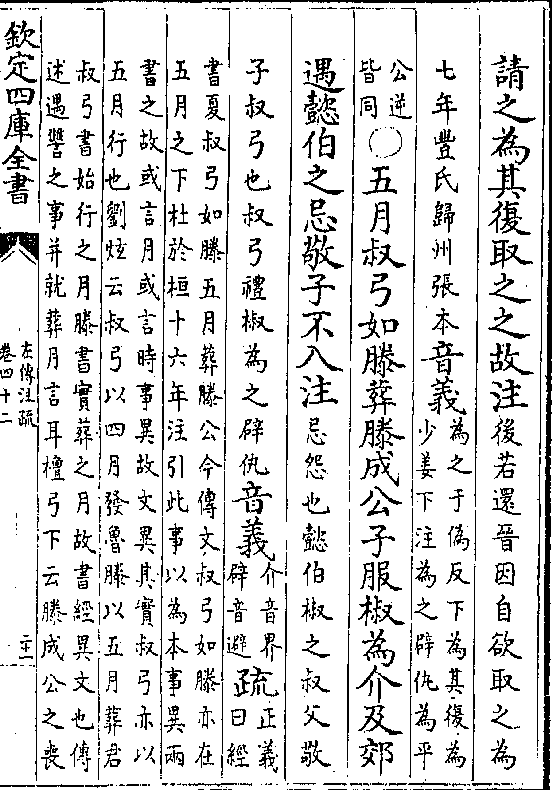 請之為其復取之之故注後若還晉因自欲取之為
七年豐氏歸州張本音義為之于偽反下為其復為
少姜下注為之辟仇為平
公逆
皆同〇五月叔弓如滕葬滕成公子服椒為介及郊
遇懿伯之忌敬子不入注忌怨也懿伯椒之叔父敬
子叔弓也叔弓禮椒為之辟仇音義介音界
辟音避疏正義
曰經
書夏叔弓如滕五月葬滕公今傳文叔弓如滕亦在
五月之下杜於桓十六年注引此事以為本事異兩
書之故或言月或言時事異故文異其實叔弓亦以
五月行也劉炫云叔弓以四月發魯滕以五月葬君
叔弓書始行之月滕書實葬之月故書經異文也傳
述遇讐之事并就葬月言耳檀弓下云滕成公之喪
欽定四庫全書
左傳注疏
卷四十二